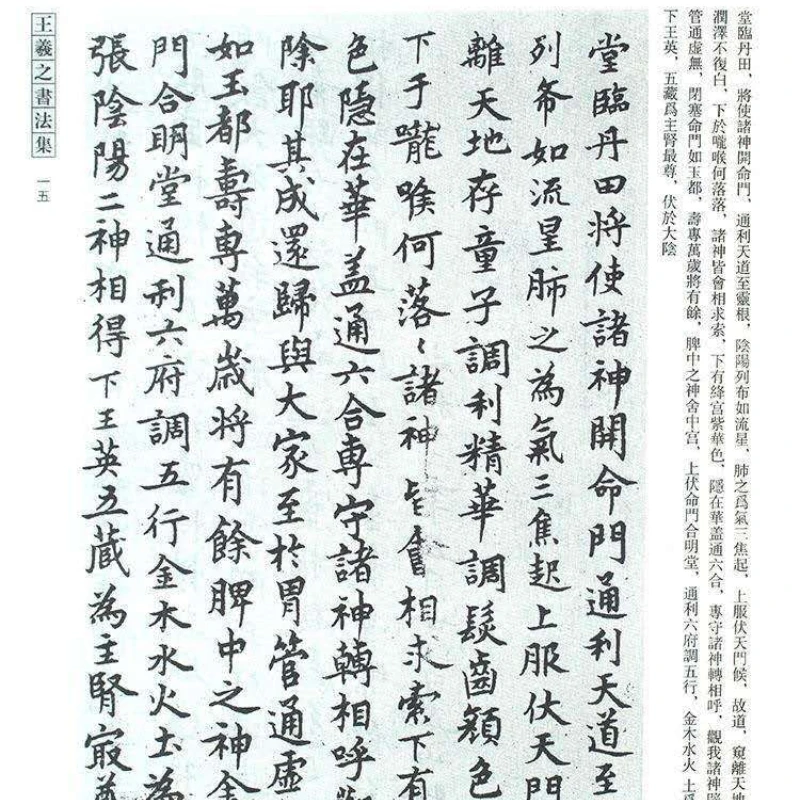 堂臨丹田、將使諸神開命門、通利天道至靈根、陰陽列布如流星、肺之爲氣三焦起、上服伏天門候、故道、窺離天地
潤澤不復白、下於嚨喉何落落、諸神皆會相求索、下有絳宫紫華色、隱在華盖通六合、專守諸神轉相呼、觀我諸神
管通虚無、閉塞命門如玉都、壽專萬歲將有餘、脾中之神舍中宫、上伏命門合明堂、通利六府調五行、金木水火土
下王英、五藏爲主腎最尊、伏於大陰
堂臨丹田將使諸神開命門通利天道至
列布如流星肺之為氣三焦起上服伏天門
離天地存童子調利精華調髮齒顔色
下于嚨喉何落〻諸神皆會相求索下有
色隱在華盖通六合專守諸神轉相呼
除耶其成還歸與大家至於胃管通虚
如玉都壽專萬歲将有餘脾中之神舍
門合明堂通利六府調五行金木水火土為
張陰陽二神相得下王英五藏為主腎㝡
王羲之書法集
一五